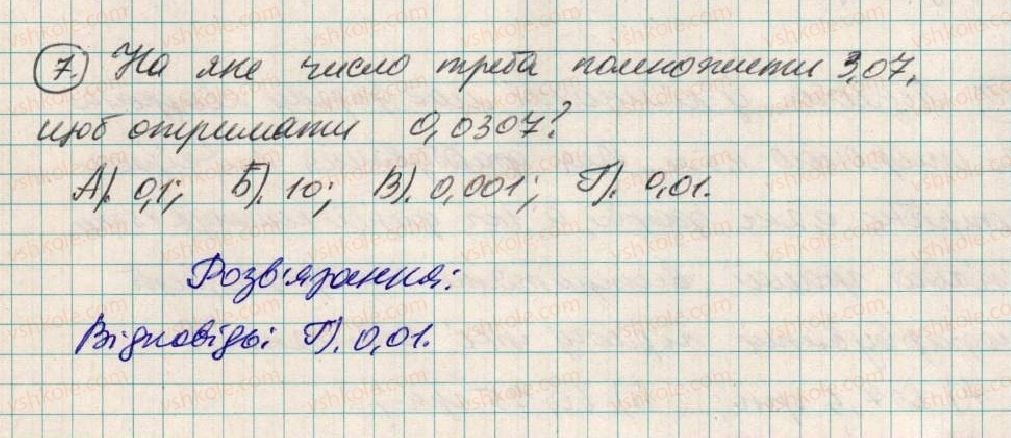 7. На яке число треба помножити 3,07,
щоб отримати 0,0307?
А). 0,1; Б). 10; В). 0,001; Г). 0,01.
Розв'язання:
Відповідь: Г). 0,01.